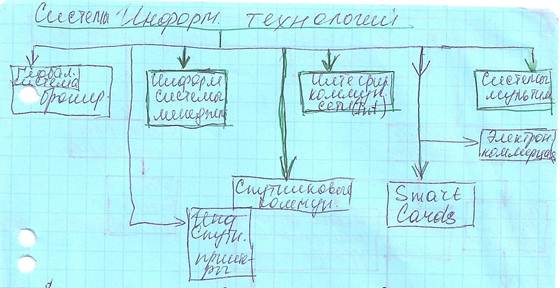 Системы Информ. технологий
Глобал.
система
бронир.
Информ
системы
менеджм
Интегрир
коммун.
сети (Int)
Системы
мультим.
Электрон
коммерция
Спутниковая
коммун.
Smart
Cards
Инд
Спутн.